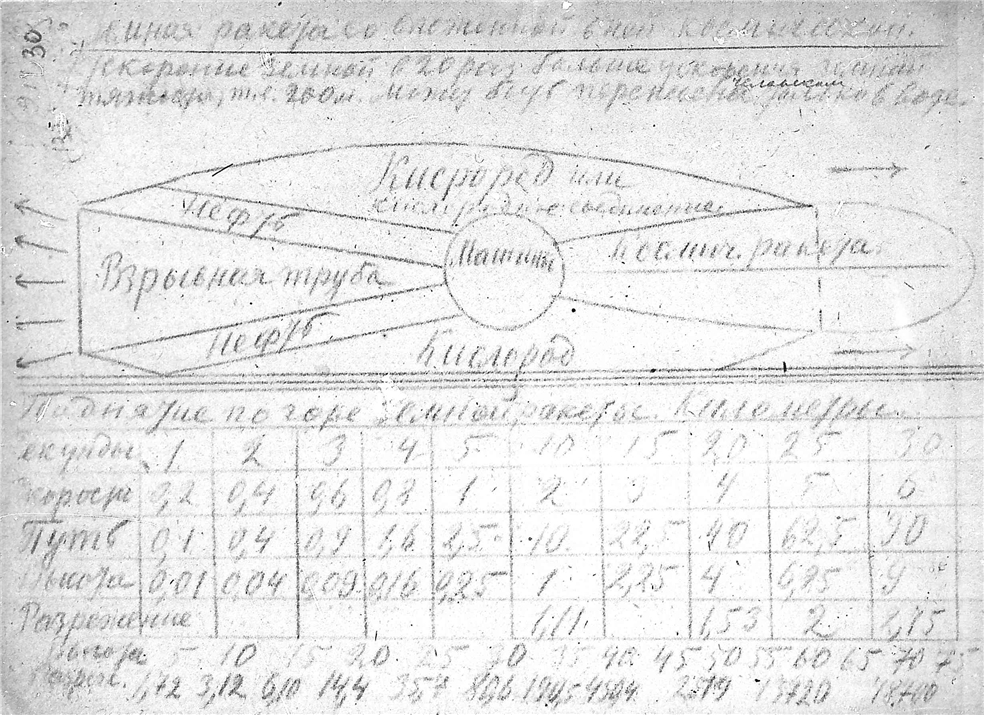 Земная ракета со вложенной в ней космической.
Ускорение земной в 20 раз больше ускорения земной
тяжести, т.е. 200 м. Может быть перенесена человеком в воде.
30
Кислород или
кислородные соединения
Нефть
Машины
Космич. ракета
Взрывная труба
Нефть
Кислород
Поднятие по горе земной ракеты. Километры.
Секунды 1 2 3 4 5 10 15 20 25 30
Скорость 0,2 0,4 0,6 0,8 1 2 3 4 5 6
Путь 0,1 0,4 0,9 1,6 2,5 10 22,5 40 62,5 90
Высота 0,01 0,04 0,09 0,16 0,25 1 2,25 4 6,25 9
Разрежение 1,11 1,53 2 2,75
Высота 5 10 15 20 25 30 35 40 45 50 55 60 65 70 75
Разреж. 1,72 3,12 6,10 14,4 35,7 2519 13720 78700